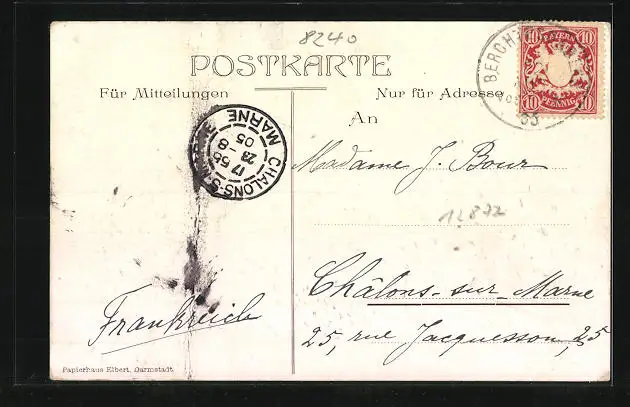 8240
POSTKARTE
Für Mitteilungen
Nur für Adresse
An
BERCHT
10 BAYERN 10
10 PFENNIG 10
CHALONS-S-MARNE
MARNE
17 58
23 - 8
05
Madame J. Bour
12872
Châlons-sur-Marne
Frankreich
25, rue Jacquesson, 25
Papierhaus Elbert, Darmstadt